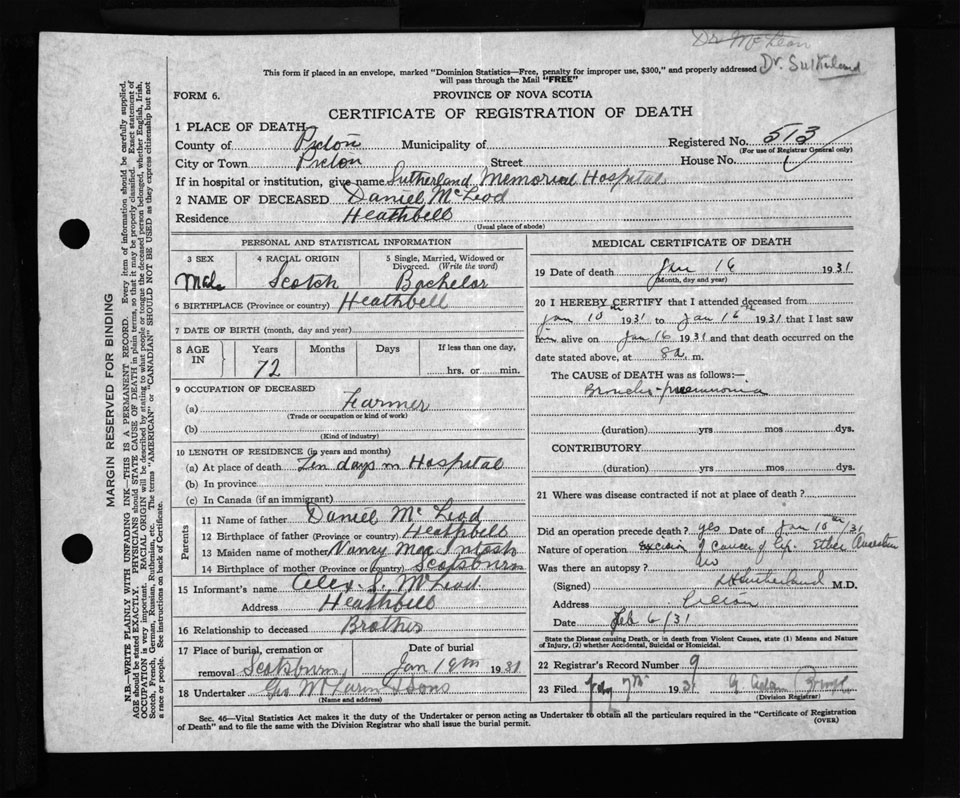 Dr. McLean
Dr. Sutherland
This form if placed in an envelope, marked "Dominion Statistics—Free, penalty for improper use, $300," and properly addressed
will pass through the Mail "FREE"
FORM 6.
PROVINCE OF NOVA SCOTIA
CERTIFICATE OF REGISTRATION OF DEATH
1 PLACE OF DEATH
Registered No. 513
(For use of Registrar General only)
County of Pictou Municipality of
City or Town Pictou Street House No.
If in hospital or institution, give name Sutherland Memorial Hospital
2 NAME OF DECEASED Daniel McLeod
Residence Heathbell
(Usual place of abode)
PERSONAL AND STATISTICAL INFORMATION
3 SEX 4 RACIAL ORIGIN 5 Single, Married, Widowed or Divorced. (Write the word)
Male Scotch Bachelor
6 BIRTHPLACE (Province or country) Heathbell
7 DATE OF BIRTH (month, day and year)
8 AGE IN Years Months Days If less than one day,
72 hrs. or min.
9 OCCUPATION OF DECEASED
(a) Farmer
(Trade or occupation or kind of work)
(b)
(Kind of industry)
10 LENGTH OF RESIDENCE (in years and months)
(a) At place of death Ten days in Hospital
(b) In province
(c) In Canada (if an immigrant)
Parents
11 Name of father Daniel McLeod
12 Birthplace of father (Province or country) Heathbell
13 Maiden name of mother Nancy MacIntosh
14 Birthplace of mother (Province or country) Scotsburn
15 Informant's name Alex. S. McLeod
Address Heathbell
16 Relationship to deceased Brother
17 Place of burial, cremation or removal Scotsburn
Date of burial Jan 19th 1931
18 Undertaker Geo & Sons
(Name and address)
MEDICAL CERTIFICATE OF DEATH
19 Date of death Jan 16 1931
(Month, day and year)
20 I HEREBY CERTIFY that I attended deceased from
Jan 10th 1931 to Jan 16th 1931 that I last saw
him alive on Jan 16 1931 and that death occurred on the
date stated above, at 8 a. m.
The CAUSE of DEATH was as follows:—
Broncho-pneumonia
(duration) yrs mos dys.
CONTRIBUTORY
(duration) yrs mos dys.
21 Where was disease contracted if not at place of death?
Did an operation precede death? yes Date of Jan 10th/31
Nature of operation Excision of cancer of lip. Ether
Was there an autopsy? no
(Signed) Sutherland M.D.
Address Pictou
Date Feb 6/31
State the Disease causing Death, or in death from Violent Causes, state (1) Means and Nature
of Injury, (2) whether Accidental, Suicidal or Homicidal.
22 Registrar's Record Number 9
23 Filed 7th 1931
(Division Registrar)
Sec. 46—Vital Statistics Act makes it the duty of the Undertaker or person acting as Undertaker to obtain all the particulars required in the "Certificate of Registration
of Death" and to file the same with the Division Registrar who shall issue the burial permit. (OVER)
MARGIN RESERVED FOR BINDING
N.B.—WRITE PLAINLY WITH UNFADING INK—THIS IS A PERMANENT RECORD. Every item of information should be carefully supplied.
AGE should be stated EXACTLY. PHYSICIANS should STATE CAUSE OF DEATH in plain terms, so that it may be properly classified. Exact statement of
OCCUPATION is very important. RACIAL ORIGIN will be described by stating to what people or tongue the deceased person belonged, whether English, Irish,
Scotch, French, German, Russian, Ruthenian, etc. The terms "AMERICAN" or "CANADIAN" SHOULD NOT BE USED as they express citizenship but not
a race or people. See instructions on back of Certificate.